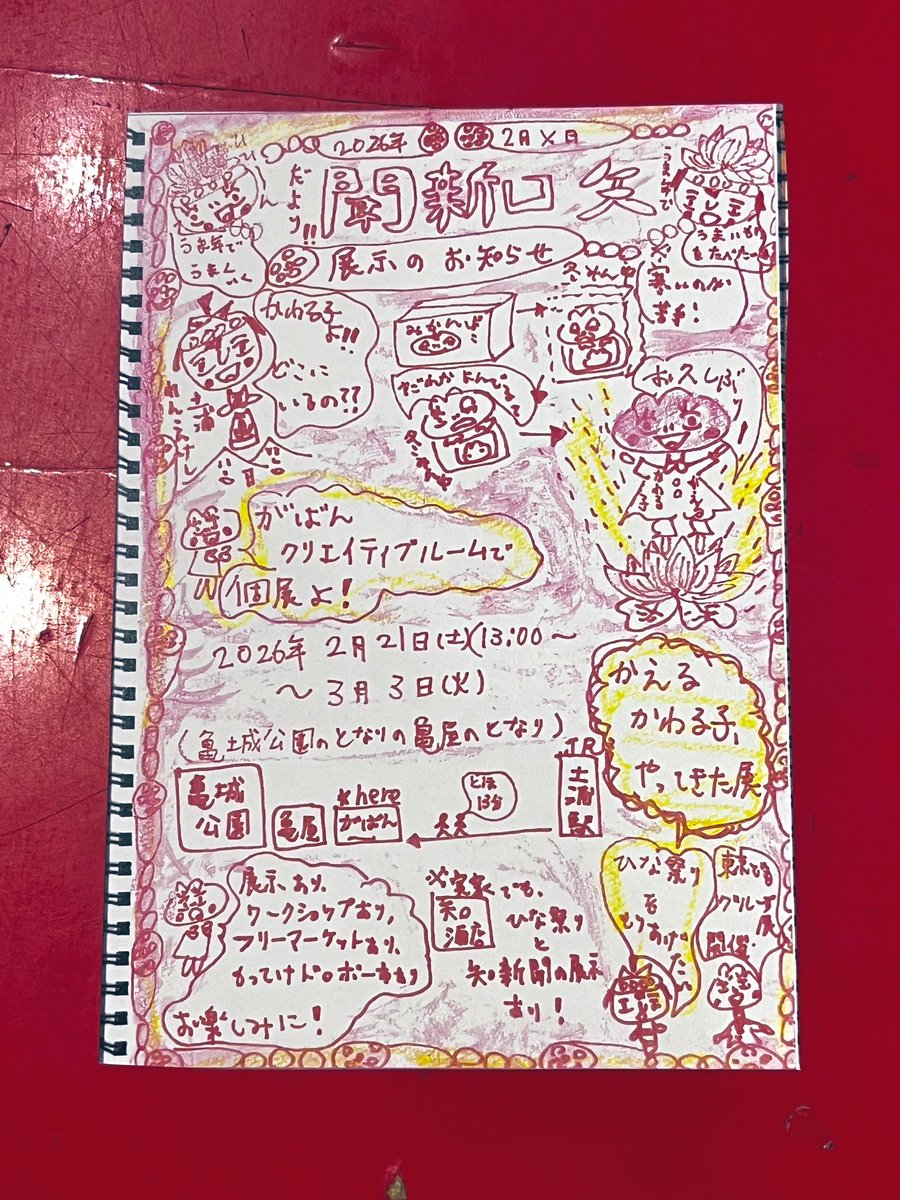 2026年 2月×日
だより!!
聞新口矢
うま年で
うまく
いく
うまいもの
をたべたーい
展示のお知らせ
寒いのが
苦手!
かわる子
よ!!
どこに
いるの??
土浦
お久しぶり
かえる
かわる子
がばん
クリエイティブルームで
個展よ!
2026年 2月21日(土)(13:00〜
〜3月3日(火)
(亀城公園のとなりの亀屋のとなり)
かえる
かわる子、
やってきた展
亀城
公園
亀屋
*here
がばん
とほ
13分
JR
土浦駅
展示あり、
ワークショップあり、
フリーマーケットあり、
もってけドロボーもあり
お楽しみに!
※実家でも、
矢口
酒店
ひな祭り
と
矢口新聞の展示
あり!
ひな祭り
を
もりあげ
たい
開催